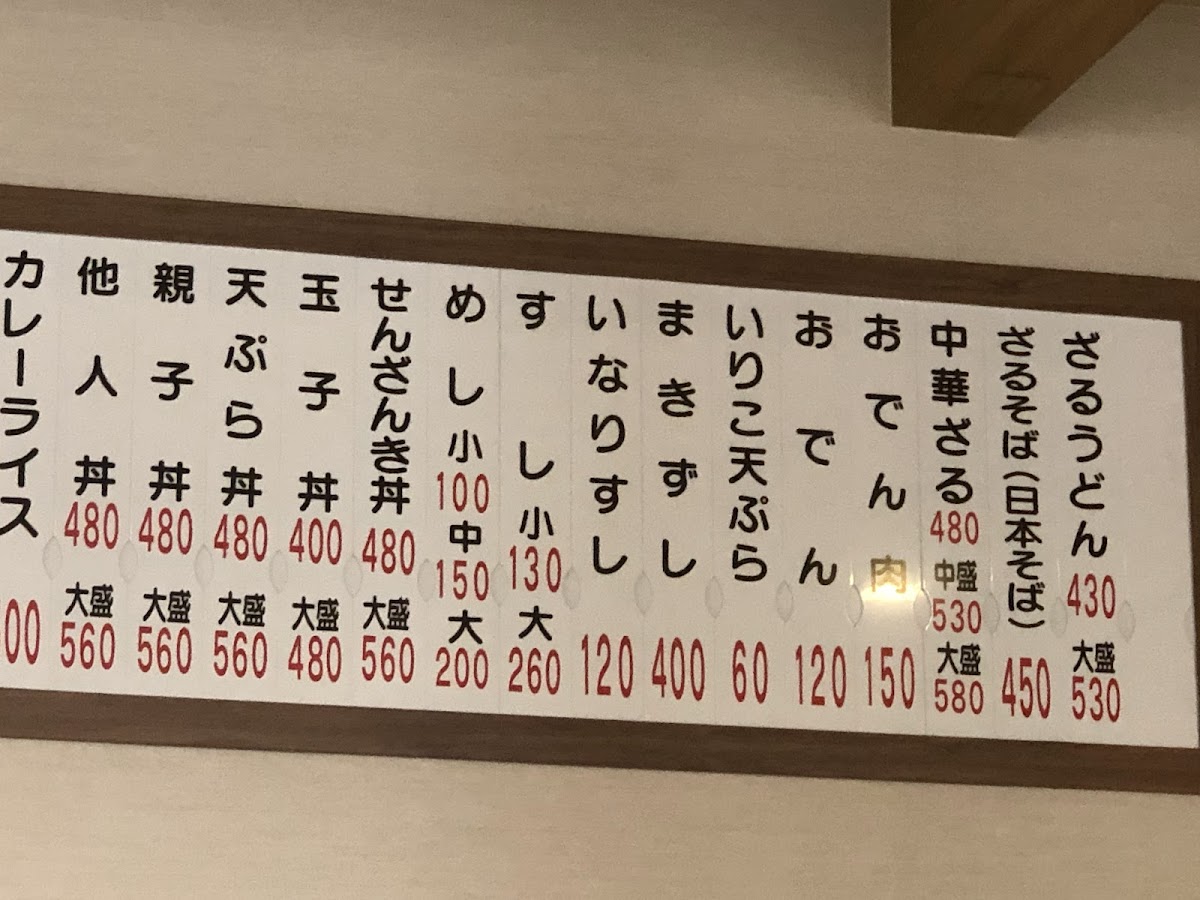 ざるうどん 430 大盛 530
ざるそば(日本そば) 450
中華ざる 480 中盛 530 大盛 580
おでん 肉 150
おでん 120
いりこ天ぷら 60
まきずし 400
いなりすし 120
すし 小 130 大 260
めし 小 100 中 150 大 200
せんざんき丼 480 大盛 560
玉子丼 400 大盛 480
天ぷら丼 480 大盛 560
親子丼 480 大盛 560
他人丼 480 大盛 560
カレーライス